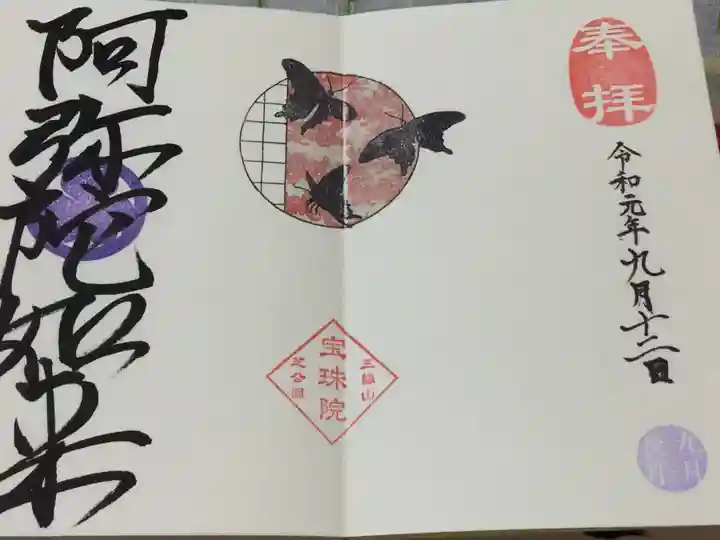 奉拝
令和元年九月十二日
九月
三縁山
宝珠院
芝公園
阿弥陀如来